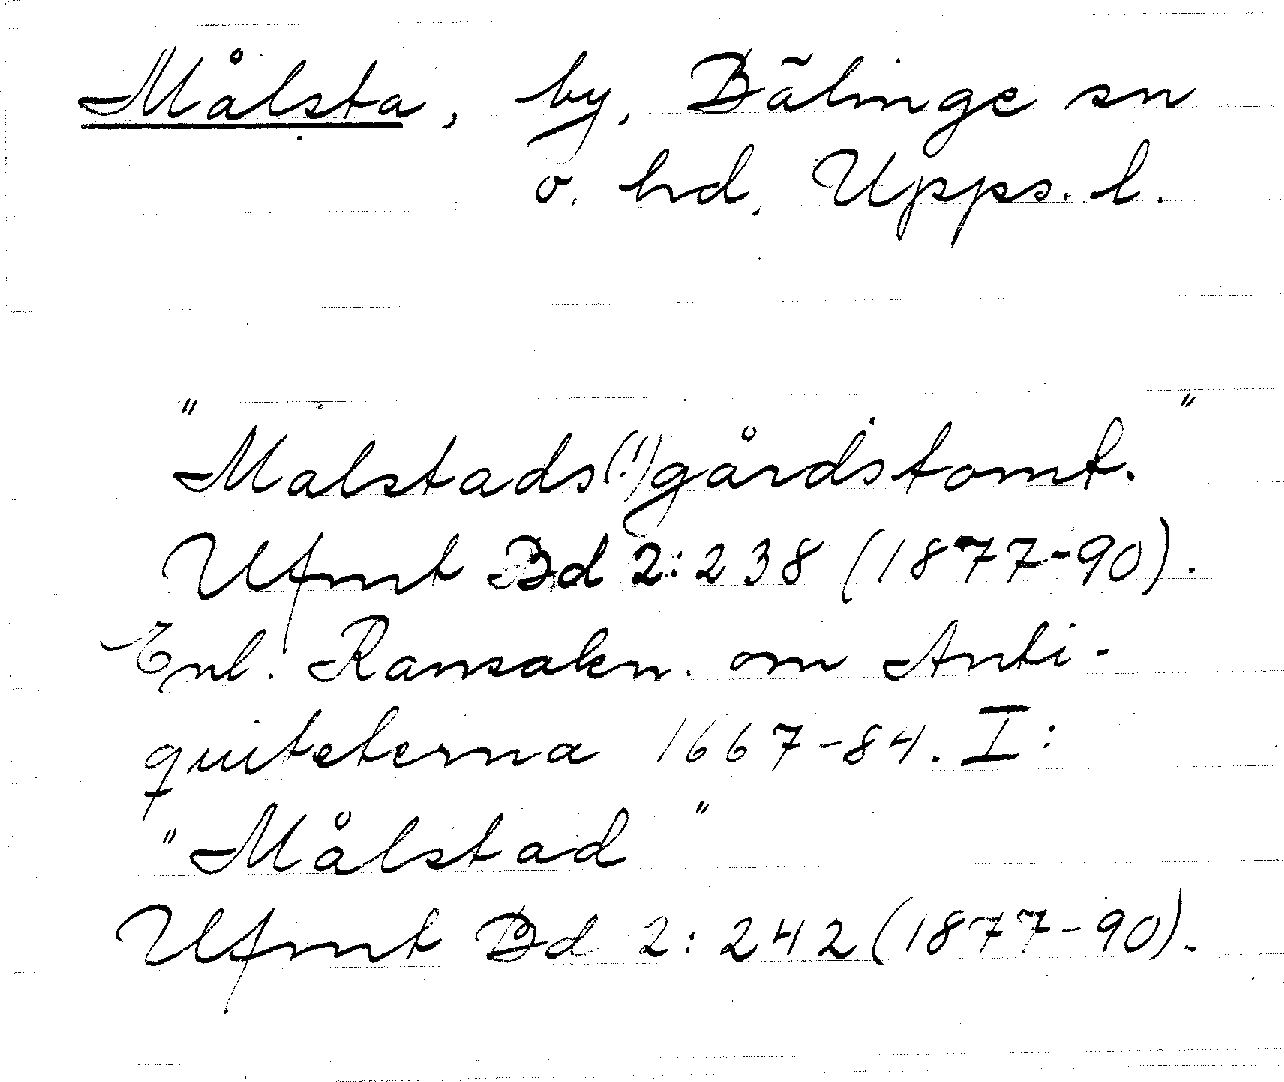 Målsta, by, Bälinge sn
o. hd, Upps. l.
"Malstads(!)gårdstomt."
Ufmt Bd 2:238 (1877-90).
Enl. Ransakn. om Anti-
quiteterna 1667-84. I:
"Målstad"
Ufmt Bd 2:242 (1877-90).